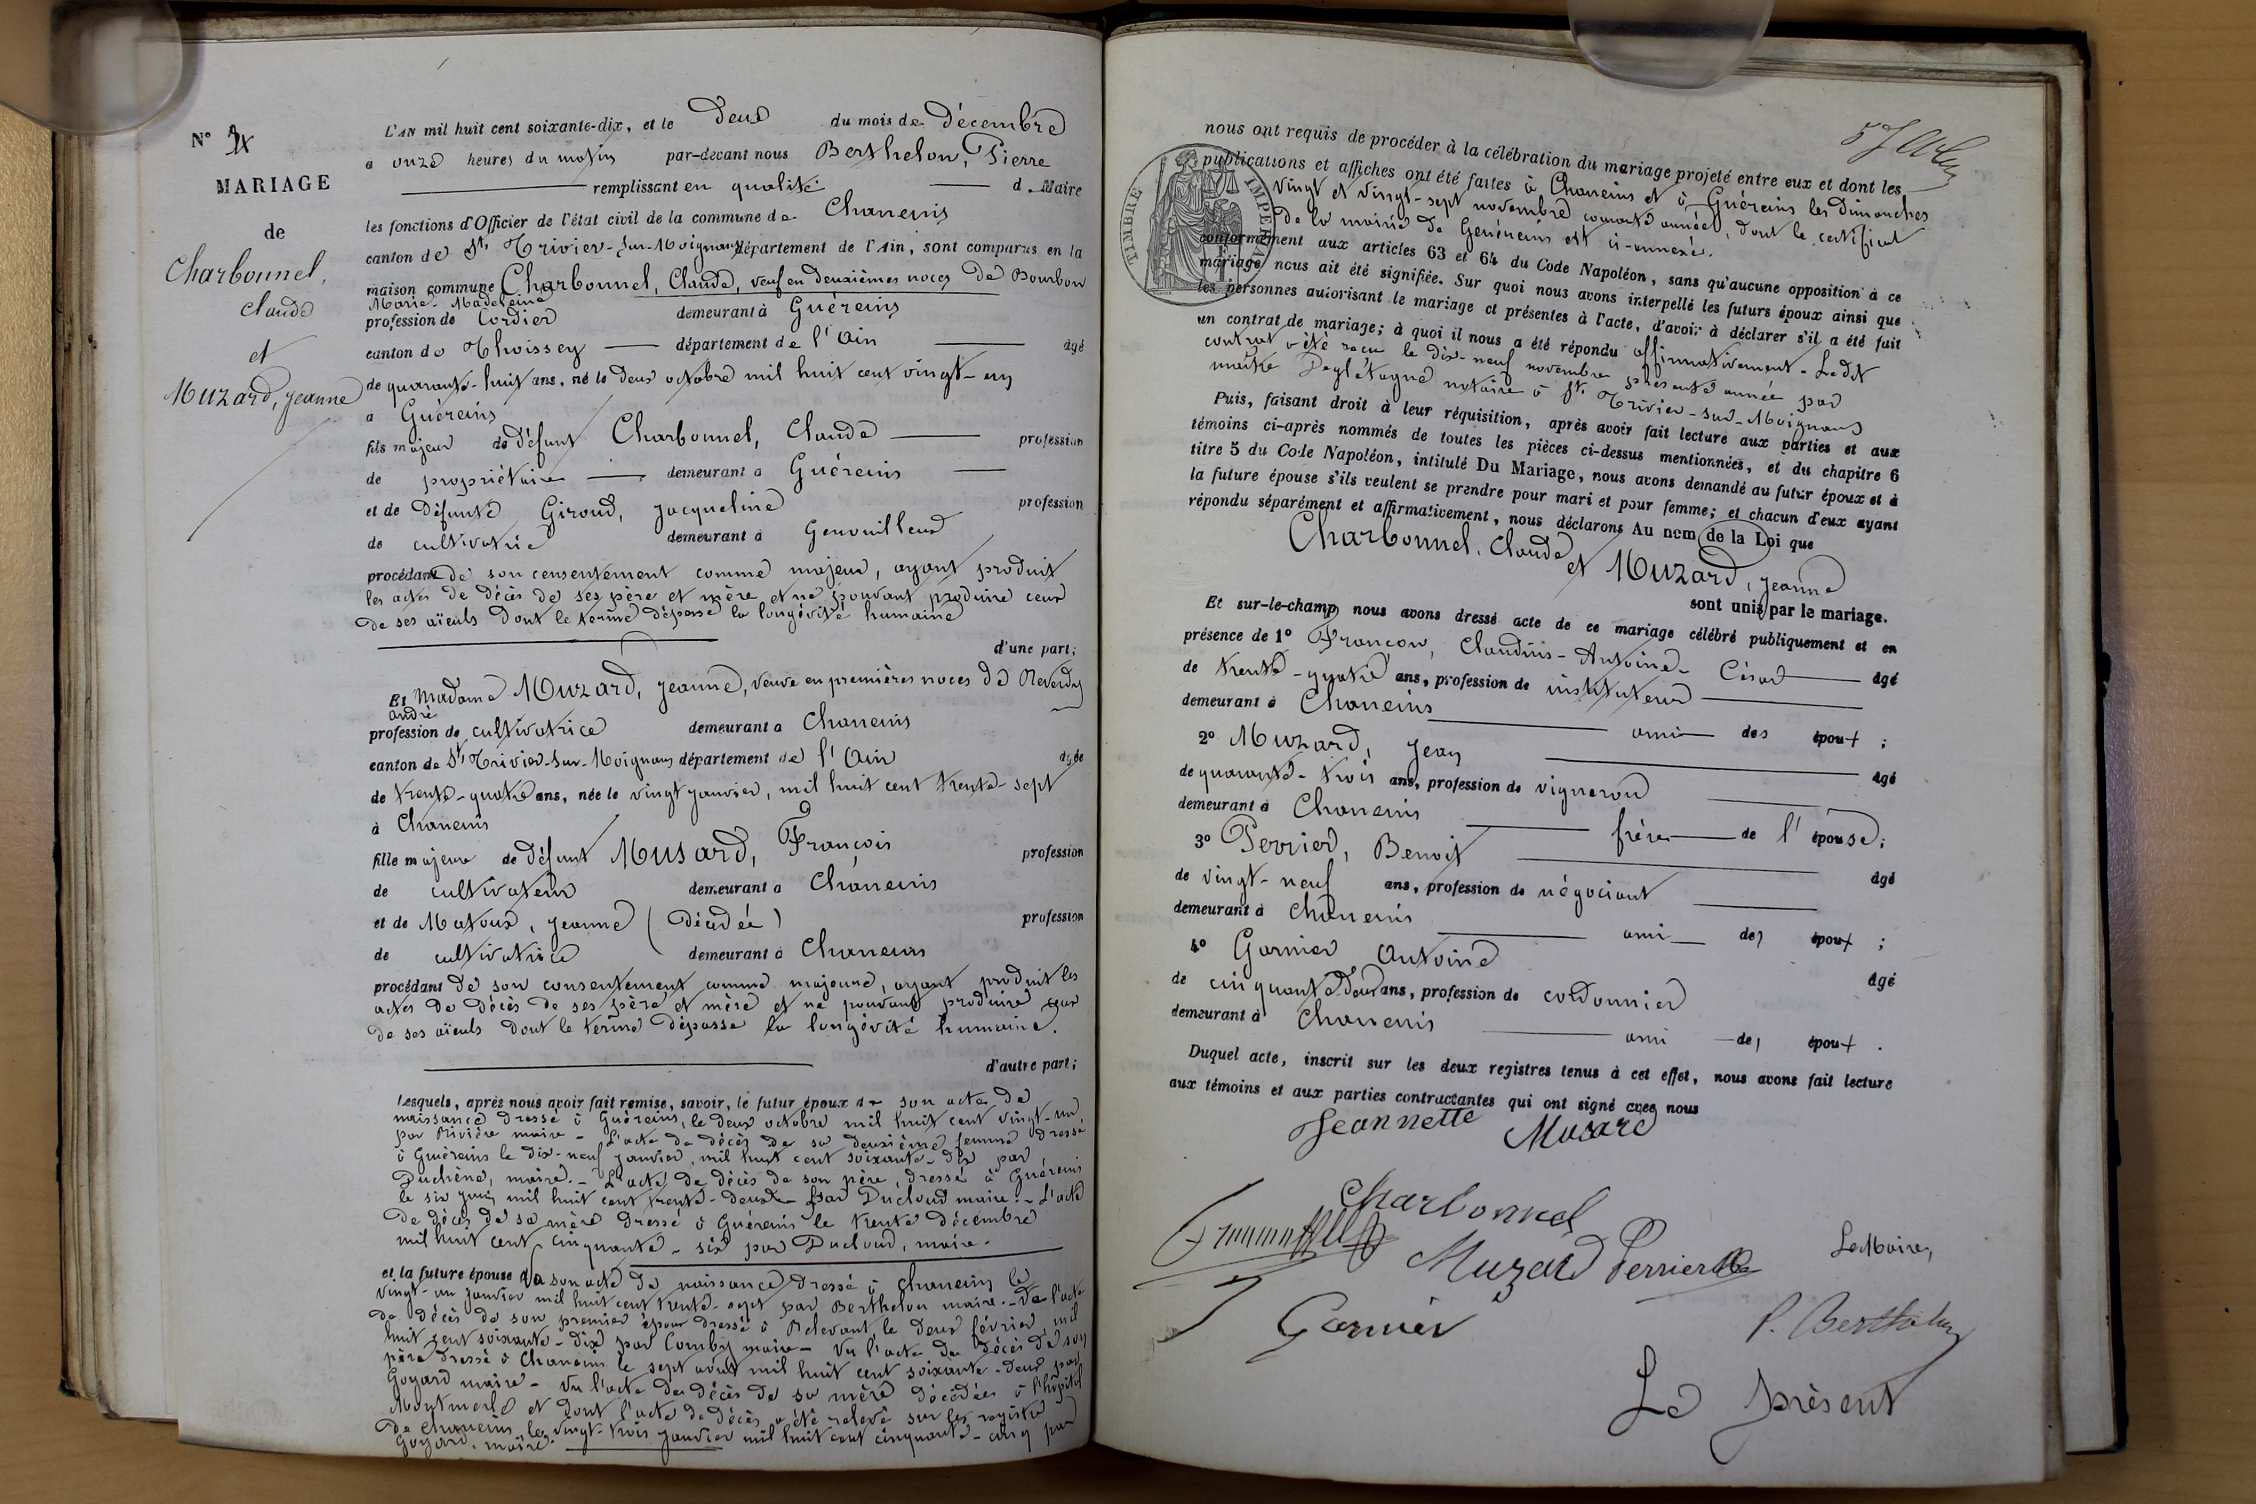 N° 9
MARIAGE
de
Charbonnel,
Claude
et
Muzard, Jeanne
L'AN mil huit cent soixante-dix, et le deux du mois de décembre
a onze heures du matin par-devant nous Berthelon, Pierre
remplissant en qualité d Maire
les fonctions d'Officier de l'état civil de la commune de Chaneins
canton de St Trivier-sur-Moignans département de l'Ain, sont comparus en la
maison commune Charbonnel, Claude, veuf en deuxièmes noces de Bourbon
Marie-Madeleine
profession de Cordier demeurant à Guéreins
canton de Thoissey département de l'Ain âgé
de quarante-huit ans, né le deux octobre mil huit cent vingt-un
a Guéreins
fils majeur de défunt Charbonnel, Claude profession
de propriétaire demeurant a Guéreins
et de Défunte Giroud, Jacqueline profession
de cultivatrice demeurant à Genouilleux
procédant de son consentement comme majeur, ayant produit
les actes de décès de ses père et mère et ne pouvant produire ceux
de ses aïeuls dont le terme dépasse la longévité humaine
d'une part;
Et Madame Muzard, Jeanne, veuve en premières noces de Reverdy
André
profession de cultivatrice demeurant a Chaneins
canton de St Trivier-sur-Moignans département de l'Ain âgée
de trente-quatre ans, née le vingt janvier, mil huit cent trente-sept
à Chaneins
fille majeure de défunt Musard, François profession
de cultivateur demeurant a Chaneins
et de Matoux, Jeanne (Décédée) profession
de cultivatrice demeurant à Chaneins
procédant de son consentement comme majeure, ayant produit les
actes de décès de ses père et mère et ne pouvant produire ceux
de ses aïeuls dont le terme dépasse la longévité humaine.
d'autre part;
Lesquels, après nous avoir fait remise, savoir, le futur époux de son acte de
naissance dressé à Guéreins, le deux octobre mil huit cent vingt-un,
par Rivière maire - L'acte de décès de sa deuxième femme dressé
à Guéreins le dix-neuf janvier, mil huit cent soixante-dix par
Duchêne, maire. - L'acte de décès de son père, dressé à Guéreins
le six juin mil huit cent trente-deux par Ducloud maire. - L'acte
de décès de sa mère dressé à Guéreins le trente décembre
mil huit cent cinquante-six par Ducloud, maire.
et la future épouse Vu son acte de naissance dressé à Chaneins le
vingt-un janvier mil huit cent trente-sept par Berthelon maire. - Vu l'acte
de décès de son premier époux dressé à Relevant le deux février mil
huit cent soixante-dix par Comby maire - Vu l'acte de décès de son
père dressé à Chaneins le sept août mil huit cent soixante-deux par
Goyard maire - Vu l'acte de décès de sa mère décédée à l'hôpital
Montmerle et dont l'acte de décès a été relevé sur les registres
de Chaneins, le vingt-trois janvier mil huit cent cinquante-cinq par
Goyard, maire.
TIMBRE IMPERIAL
nous ont requis de procéder à la célébration du mariage projeté entre eux et dont les
publications et affiches ont été faites à Chaneins et à Guéreins les dimanches
vingt et vingt-sept novembre courante année, dont le certificat
de la mairie de Guéreins est ci-annexé.
conformément aux articles 63 et 64 du Code Napoléon, sans qu'aucune opposition à ce
mariage nous ait été signifiée. Sur quoi nous avons interpellé les futurs époux ainsi que
les personnes autorisant le mariage et présentes à l'acte, d'avoir à déclarer s'il a été fait
un contrat de mariage; à quoi il nous a été répondu affirmativement - Ledit
contrat a été reçu le dix-neuf novembre présente année par
maître Deglétagne notaire à St Trivier-sur-Moignans
Puis, faisant droit à leur réquisition, après avoir fait lecture aux parties et aux
témoins ci-après nommés de toutes les pièces ci-dessus mentionnées, et du chapitre 6
titre 5 du Code Napoléon, intitulé Du Mariage, nous avons demandé au futur époux et à
la future épouse s'ils veulent se prendre pour mari et pour femme; et chacun d'eux ayant
répondu séparément et affirmativement, nous déclarons Au nom de la Loi que
Charbonnel, Claude et Muzard, Jeanne
sont unis par le mariage.
Et sur-le-champ nous avons dressé acte de ce mariage célébré publiquement et en
présence de 1° Françon, Claudius-Antoine-César âgé
de trente-quatre ans, profession de instituteur
demeurant à Chaneins ami des époux ;
2° Muzard, Jean âgé
de quarante-trois ans, profession de vigneron
demeurant à Chaneins frère de l'épouse;
3° Perrier, Benoit âgé
de vingt-neuf ans, profession de négociant
demeurant à Chaneins ami des époux ;
4° Garnier Antoine âgé
de cinquante-deux ans, profession de cordonnier
demeurant à Chaneins ami des époux .
Duquel acte, inscrit sur les deux registres tenus à cet effet, nous avons fait lecture
aux témoins et aux parties contractantes qui ont signé avec nous
Jeannette Musard
Charbonnel
Muzard Perrier
Le Maire,
Garnier
P. Berthelon
Le présent